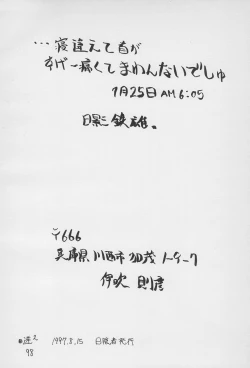 …寝違えて首が
すげー痛くてまわんないでしゅ
1月25日 AM 6:05
日影 鉄雄。
〒666
兵庫県川西市加茂
伊吹 則彦
1997.8.15 日陰者発行
98